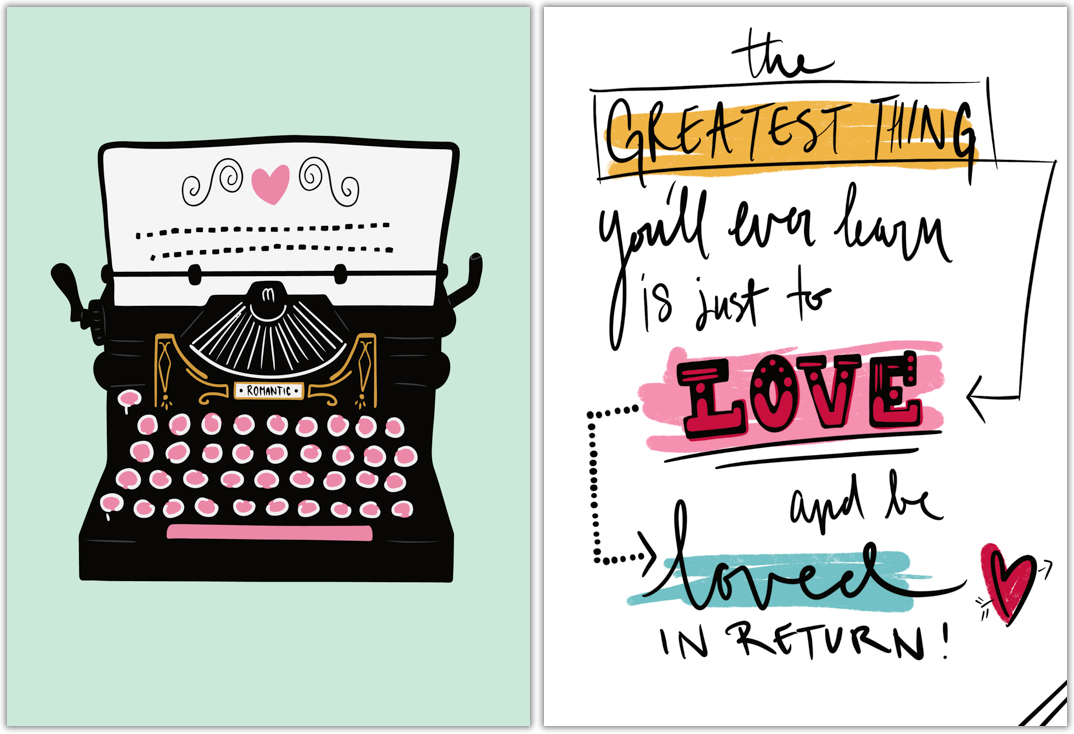 m
• ROMANTIC •
the
GREATEST THING
you'll ever learn
is just to
LOVE
and be
loved
IN RETURN!